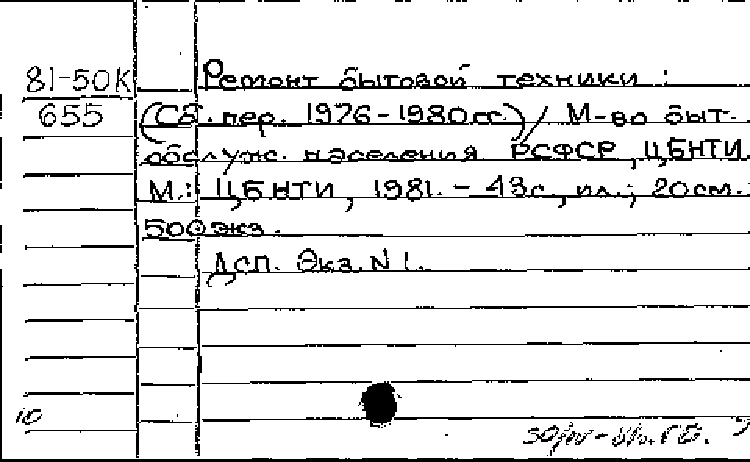 81-50К Ремонт бытовой техники :
655 (Сб. пер. 1976-1980гг.) / М-во быт.
обслуж. населения РСФСР, ЦБНТИ.
М.: ЦБНТИ, 1981. - 43с., ил.; 20см.
500экз.
Дсп. Экз. N1.
10